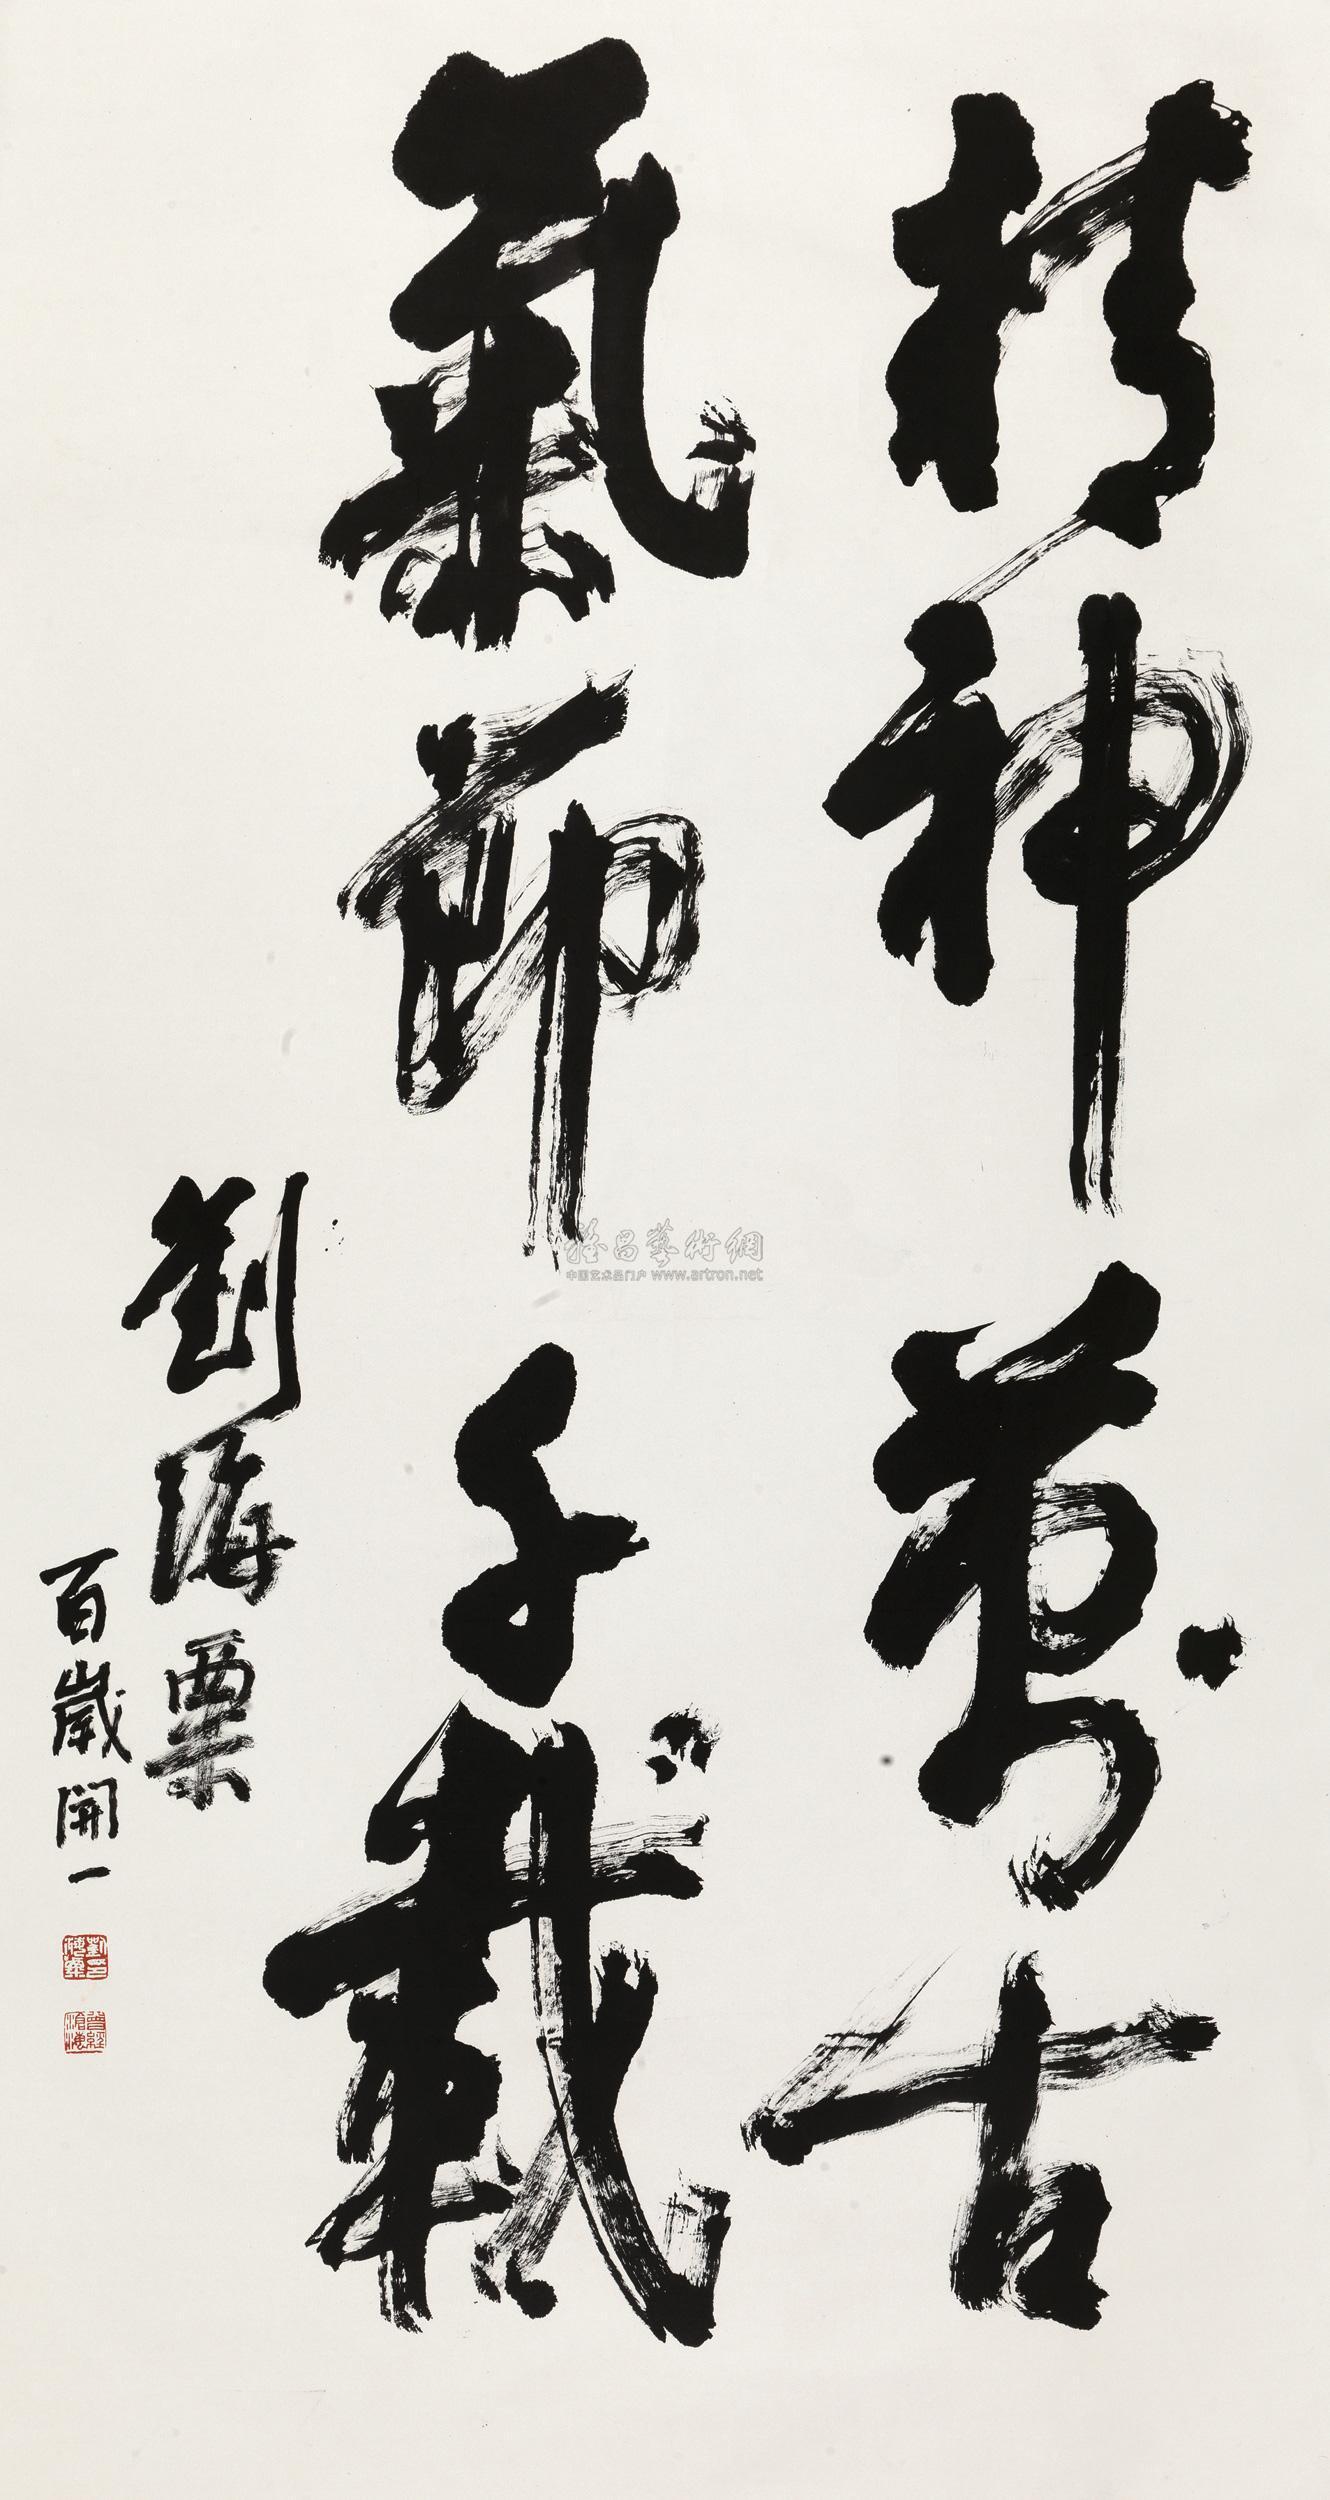 精神萬古
氣節千載
劉海粟
百歲開一
劉海粟印
曾經滄海
雅昌藝術網
中国艺术品门户 www.artron.net